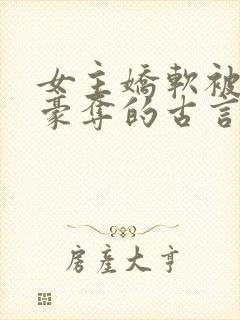 女主嬌軟被
豪奪的古言
房產大亨